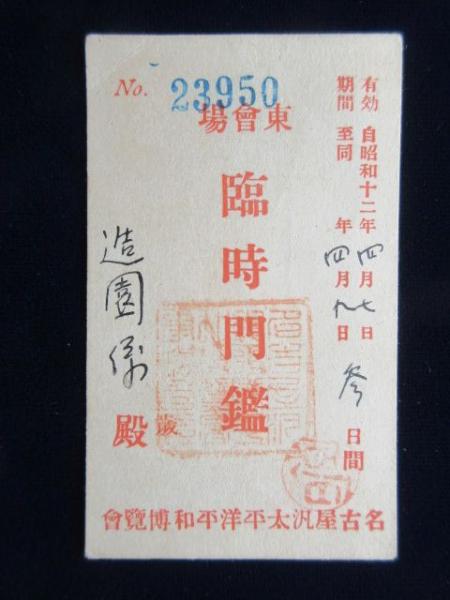 No. 23950
場會東
有効期間 自昭和十二年四月七日
至同 年四月九日
参日間
臨時門鑑
造園係
歲
殿
會覽博和平洋平太汎屋古名